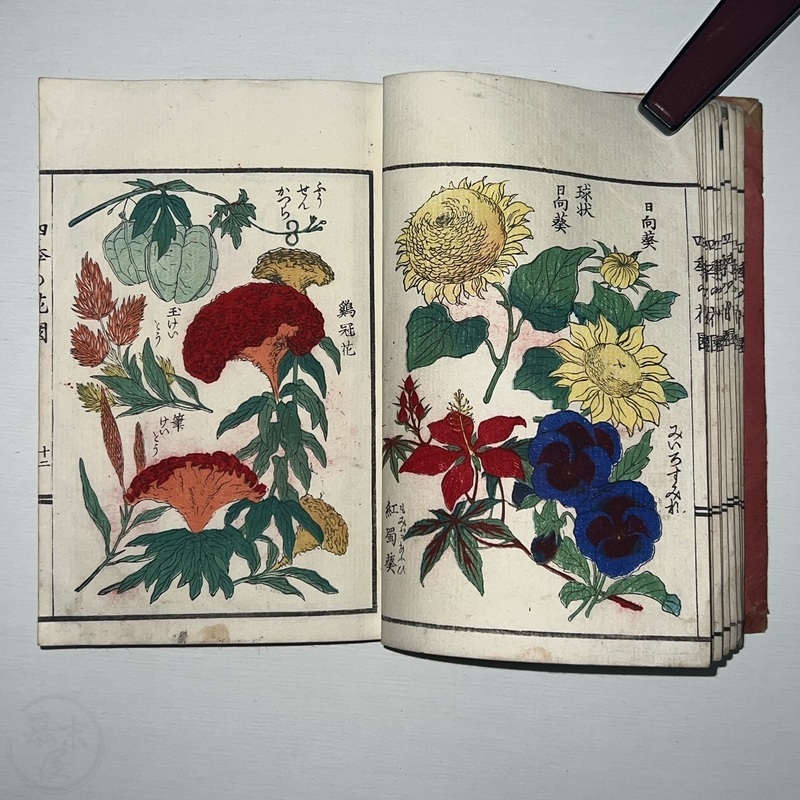 日向葵
球状
日向葵
みいろすみれ
もみぢあふひ
紅蜀葵
ふう
せん
かつら
鷄冠花
玉けい
とう
筆
けいとう
四季の花園
十二